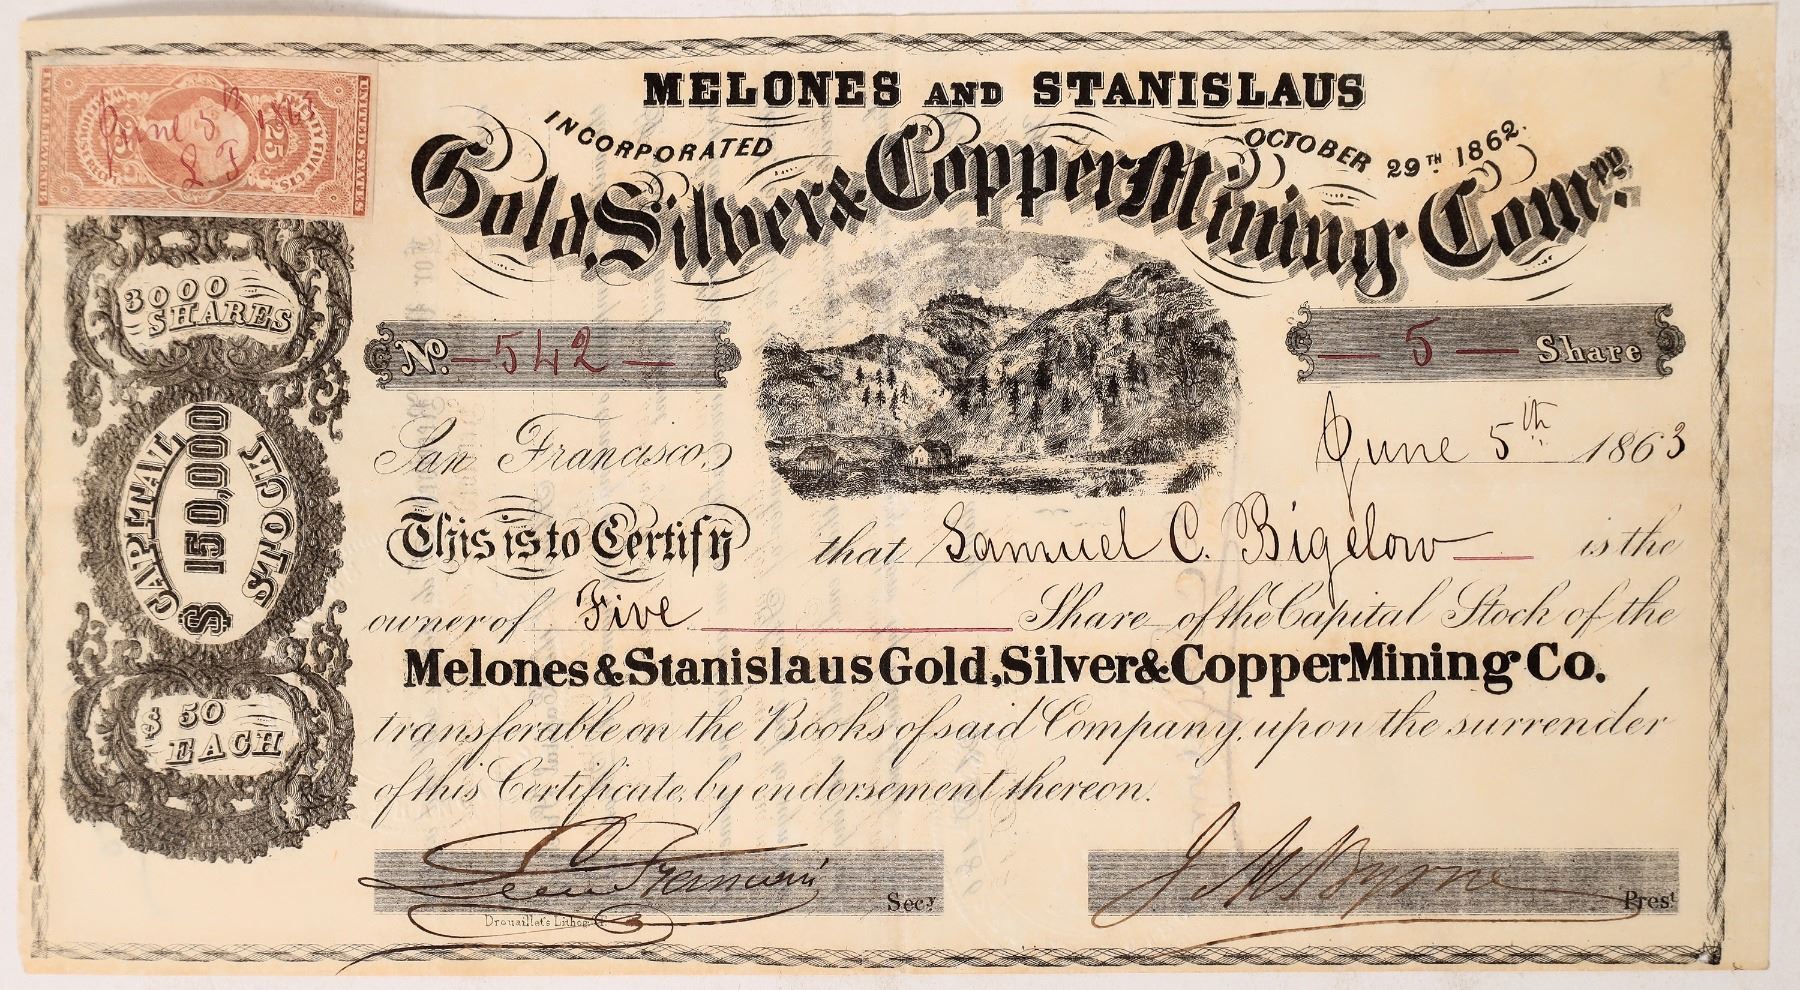 MELONES AND STANISLAUS
INCORPORATED OCTOBER 29TH 1862.
Gold, Silver & Copper Mining Compy.
UNITED STATES
TWENTY FIVE CTS.
25
June 5 1863
L F
3000
SHARES
CAPITAL
$150,000
STOCK
$50
EACH
No. 542
5 Share
San Francisco, June 5th 1863
This is to Certify that Samuel C. Bigelow is the
owner of Five Share of the Capital Stock of the
Melones & Stanislaus Gold, Silver & Copper Mining Co.
transferable on the Books of said Company, upon the surrender
of this Certificate, by endorsement thereon.
Secy
J M Byrne Prest
Drouaillet's Lithog.